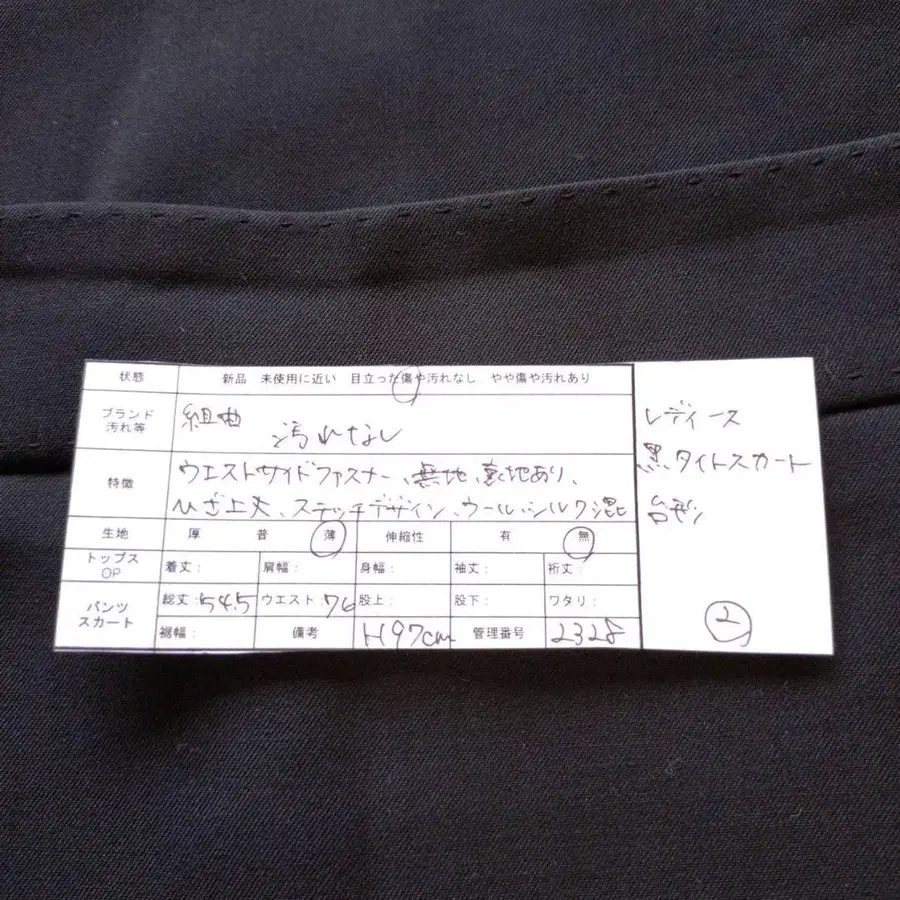 状態 新品 未使用に近い 目立った傷や汚れなし やや傷や汚れあり
ブランド 汚れ等 組曲 汚れなし
特徴 ウエストサイドファスナー、無地、裏地あり、
ひざ上丈、ステッチデザイン、ウール、シルク混
生地 厚 普 薄 伸縮性 有 無
トップス OP 着丈: 肩幅: 身幅: 袖丈: 裄丈:
パンツ スカート 総丈: 54.5 ウエスト: 76 股上: 股下: ワタリ:
裾幅: 備考 H97cm 管理番号 2328
レディース
黒タイトスカート
台形
2